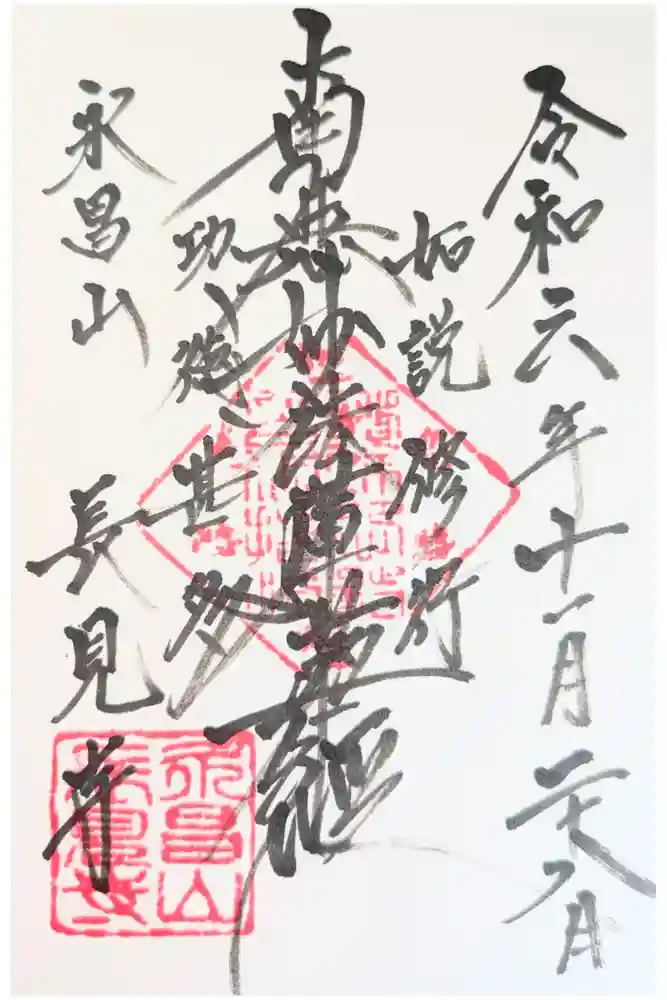 令和六年十一月二十八日
如説修行
南無妙法蓮華經
功徳甚多
永昌山 長見寺
永昌山